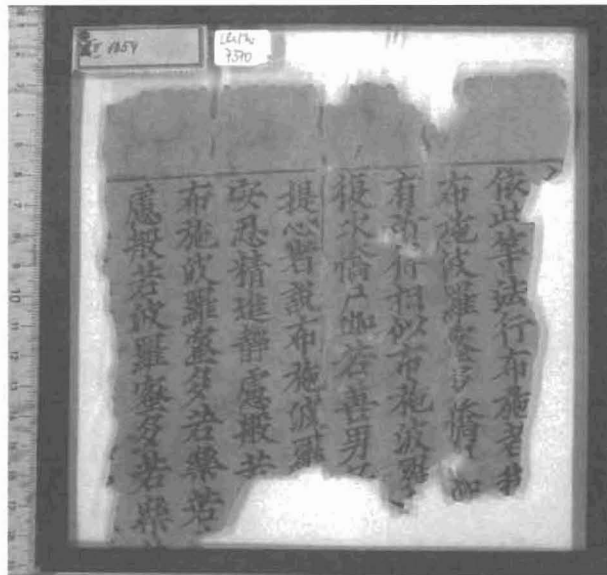 1854
Ch/U
7570
依此等法行布施者我
布施波羅蜜多憍
有所得相似布施波羅
復次憍尸迦若善男
提心者說布施波羅
安忍精進靜慮般若
布施波羅蜜多若樂若
慮般若波羅蜜多若樂